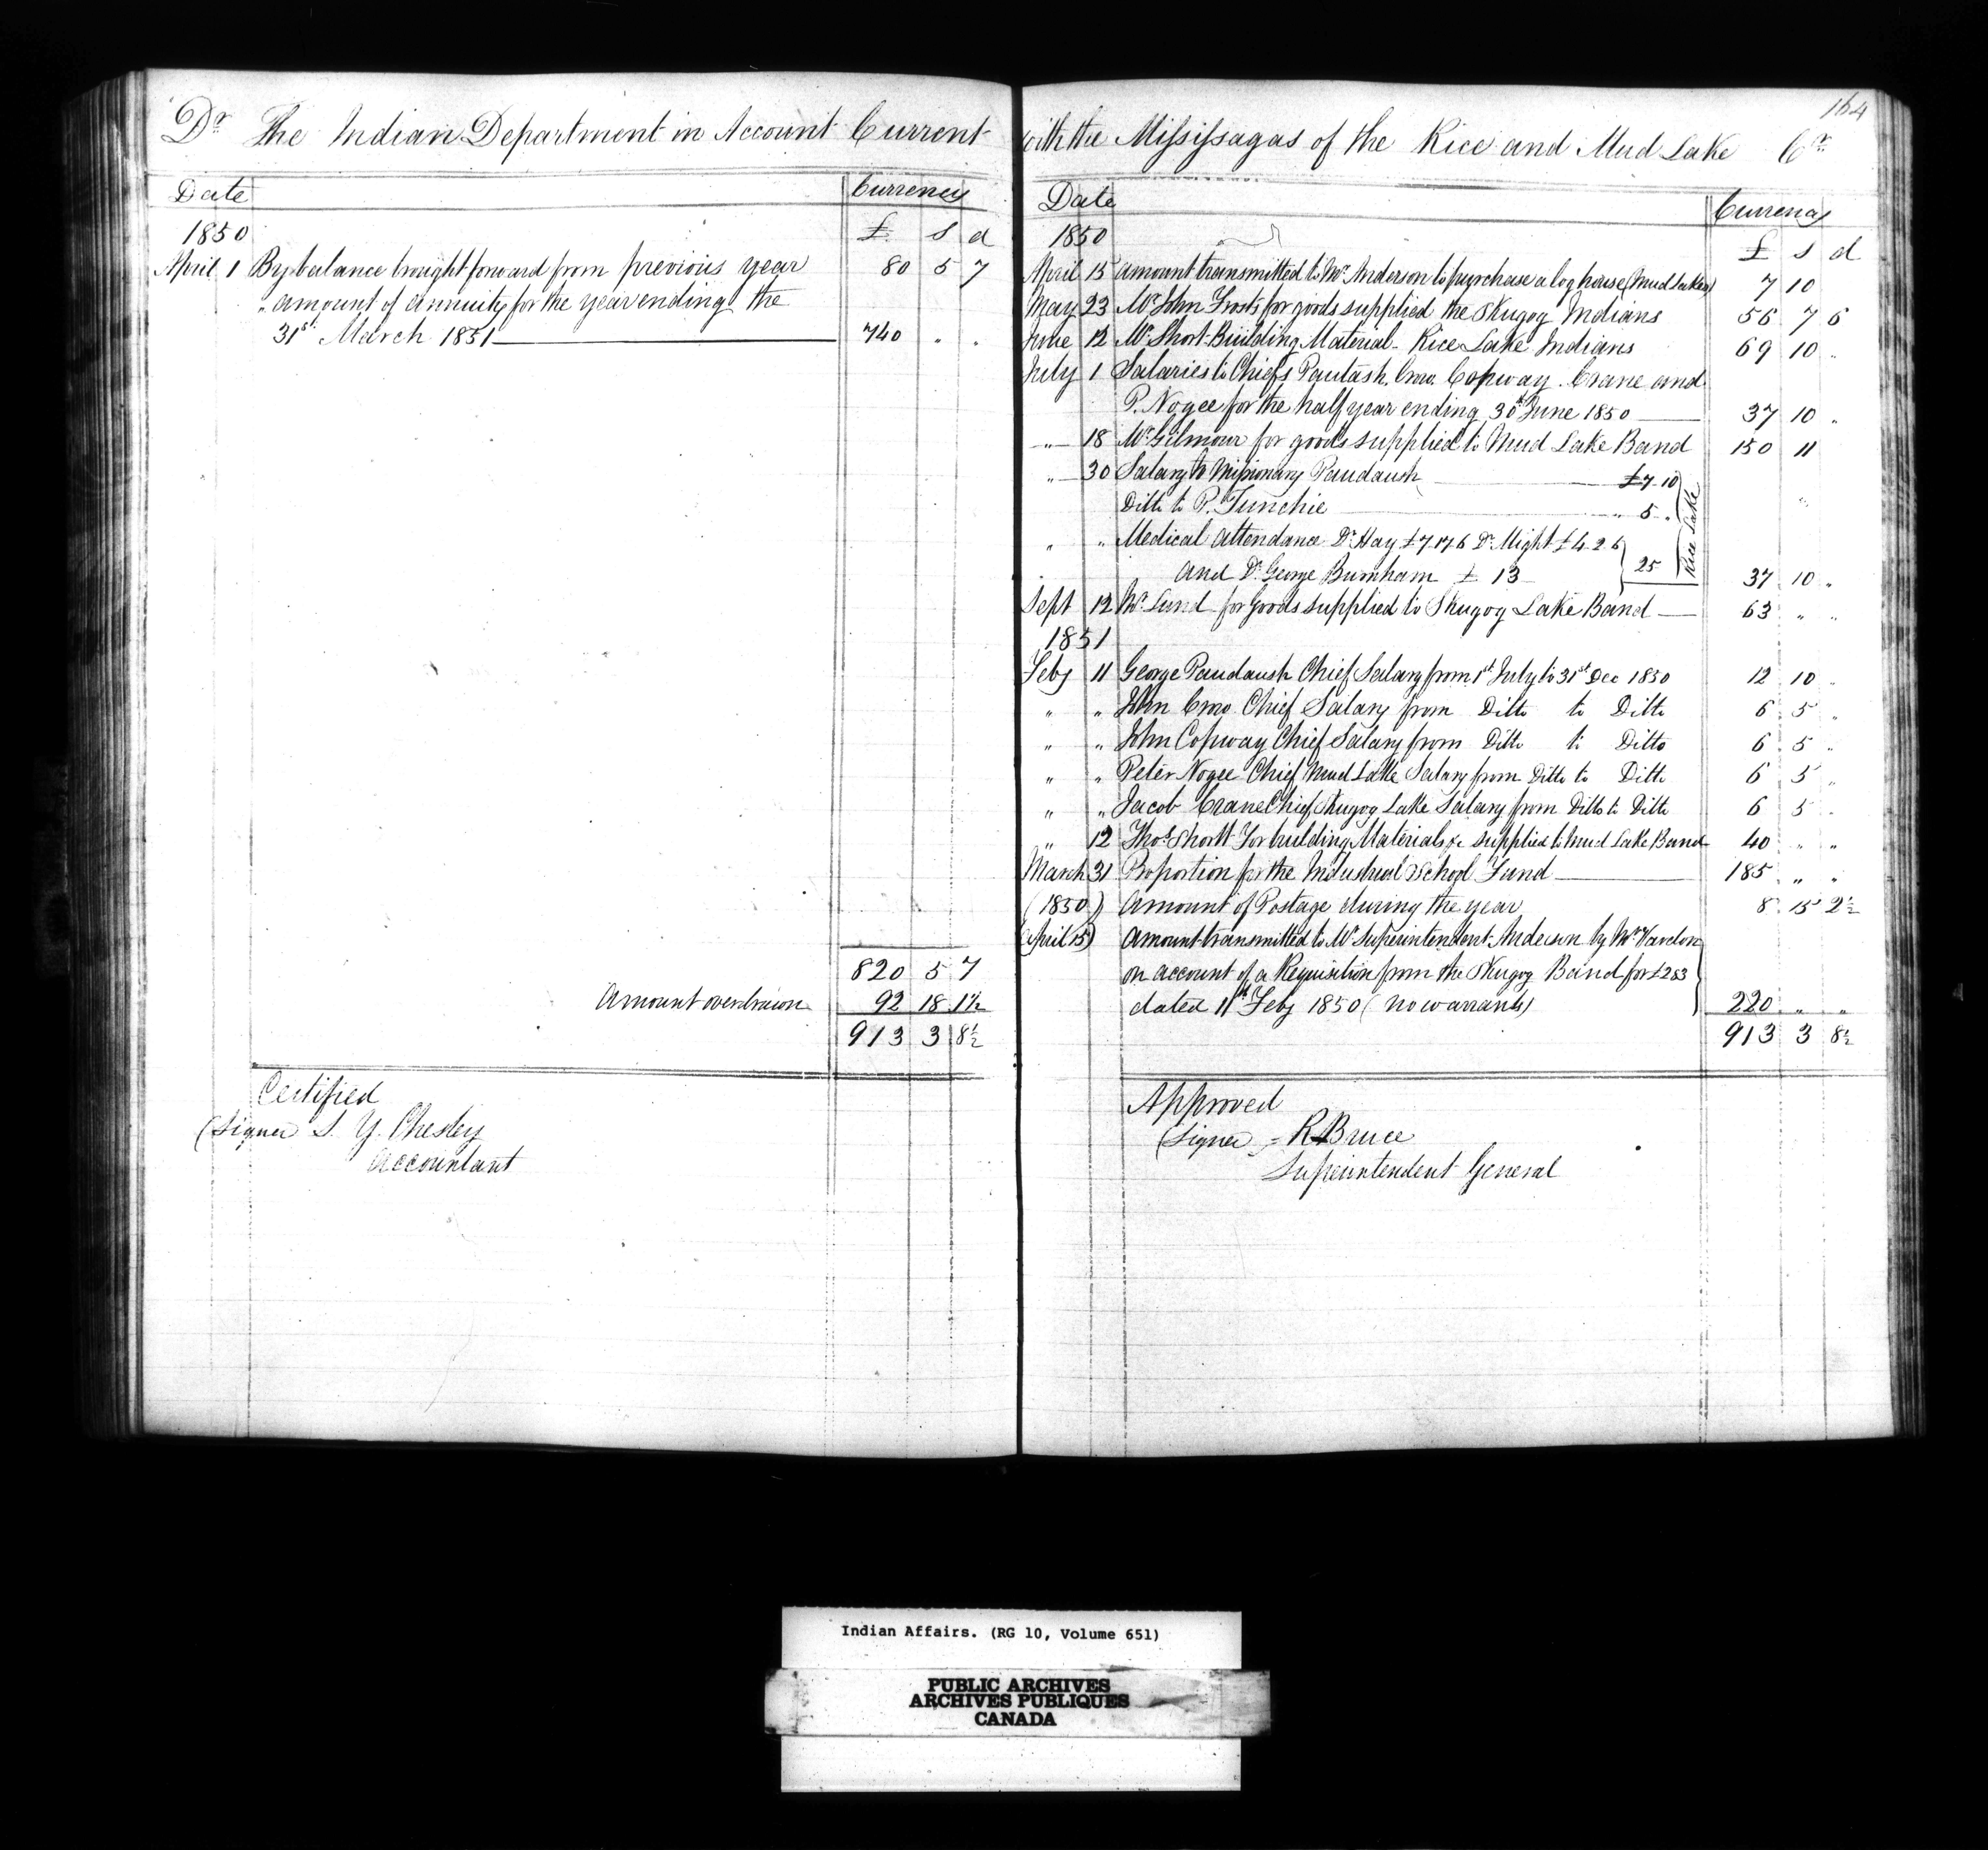 164
Dr The Indian Department in Account Current with the Mississagas of the Rice and Mud Lake Cr
Date Currency
1850 £ s d
April 1 By balance brought forward from previous year 80 5 7
" amount of annuity for the year ending the
31st March 1851 740 " "
820 5 7
Amount overdrawn 92 18 1½
913 3 8½
Certified
(Signed S. Y. Chesley
Accountant
Date Currency
1850 £ s d
April 15 amount transmitted to Mr Anderson to purchase a log house (Mud Lake) 7 10
May 23 Mr John Frosts for goods supplied the Skugog Indians 56 7 6
June 12 Mr Short Building Material Rice Lake Indians 69 10 "
July 1 Salaries to Chiefs Pautash, Crow, Copway, Crane and
P. Nogee for the half year ending 30th June 1850 37 10 "
" 18 Mr Gilmour for goods supplied to Mud Lake Band 150 11
" 30 Salary to Missionary Paudaush £7-10
Ditto to P. Tunchie " 5 "
" " Medical attendance Dr Hay £7.17.6 Dr Might £4.2.6
and Dr George Burnham £ 13 25 Rice Lake 37 10 "
Sept 12 Mr Lund for Goods supplied to Skugog Lake Band 63 " "
1851
Feby 11 George Paudaush Chief Salary from 1st July to 31st Dec 1850 12 10 "
" " John Crow Chief Salary from Ditto to Ditto 6 5 "
" " John Copway Chief Salary from Ditto to Ditto 6 5 "
" " Peter Nogee Chief Mud Lake Salary from Ditto to Ditto 6 5 "
" " Jacob Crane Chief Skugog Lake Salary from Ditto to Ditto 6 5 "
" 12 Thos Shortt For building Materials &c supplied to Mud Lake Band 40 " "
March 31 Proportion for the Industrial School Fund 185 " "
(1850) Amount of Postage during the year 8 15 2½
(April 15) Amount transmitted to Mr Superintendent Anderson by Mr Vardon
on account of a Requisition from the Skugog Band for £283
dated 11th Feby 1850 (no warrants) 220 " "
913 3 8½
Approved
(Signed R Bruce
Superintendent General
Indian Affairs. (RG 10, Volume 651)
PUBLIC ARCHIVES
ARCHIVES PUBLIQUES
CANADA